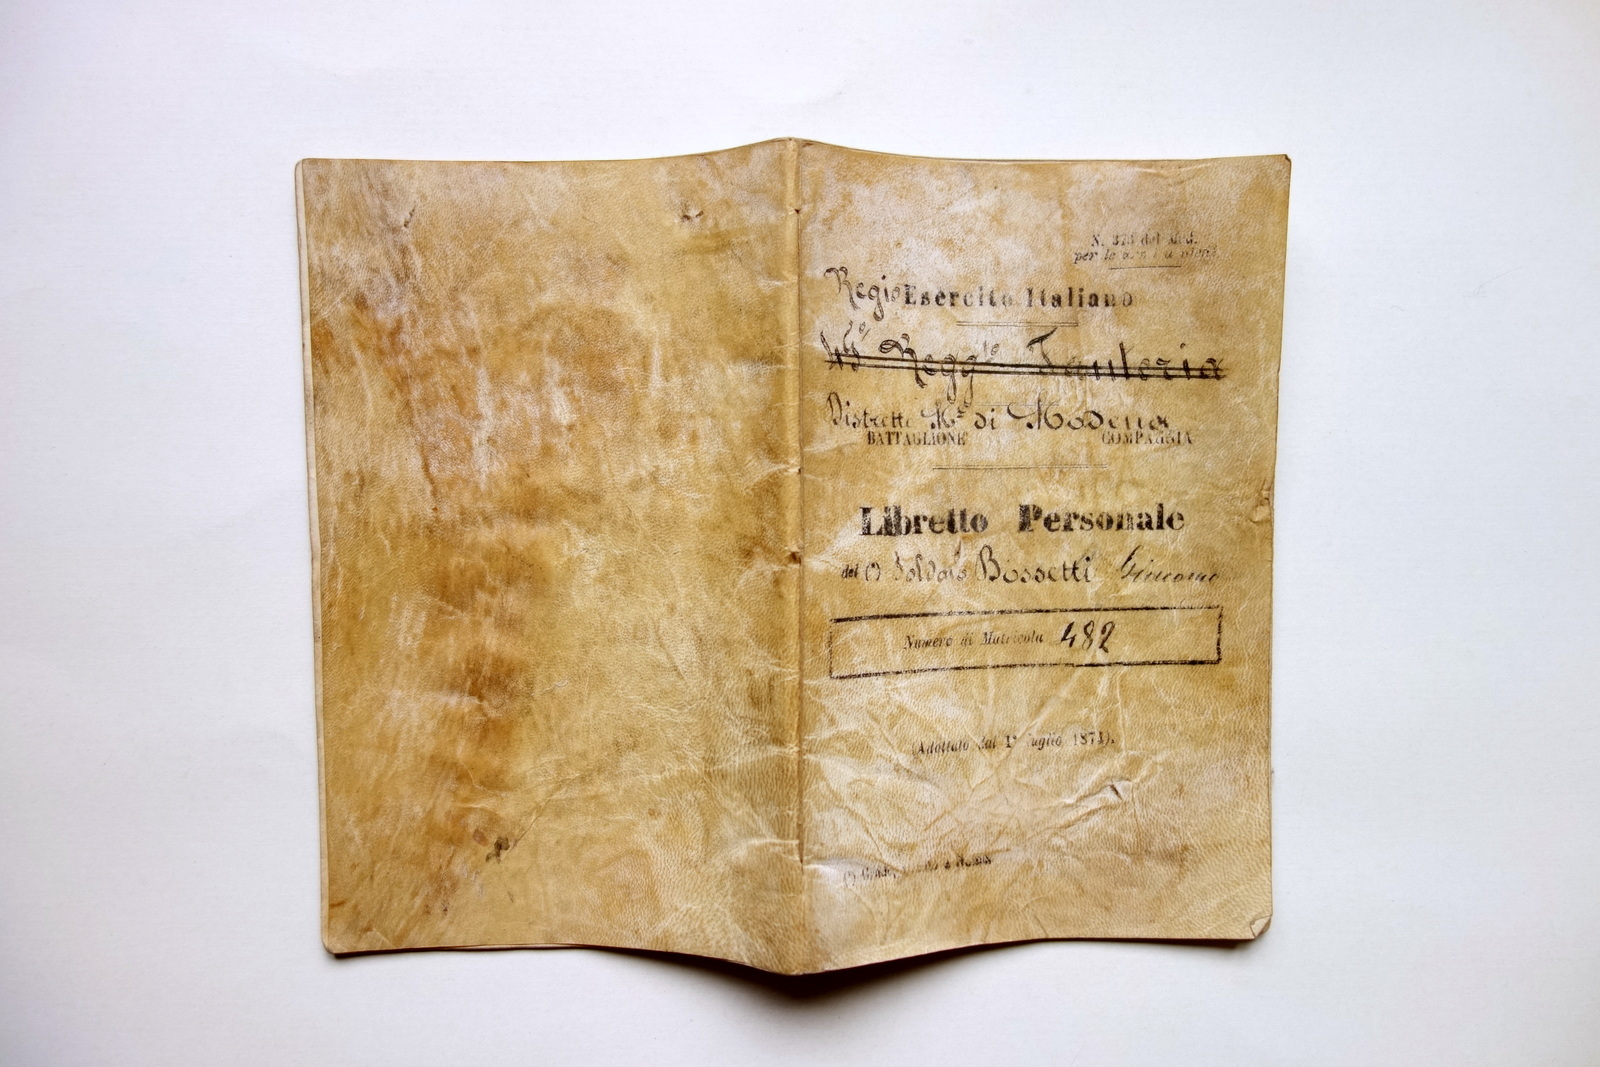 N. 373 del
per le
Regio Esercito Italiano
Regg.to Fanteria
Distretto M.re di Modena
BATTAGLIONE COMPAGNIA
Libretto Personale
del (*) Soldato Bossetti Giacomo
Numero di Matricola 482
(Adottato dal 1° luglio 1874).
(*) Grado, e Nome